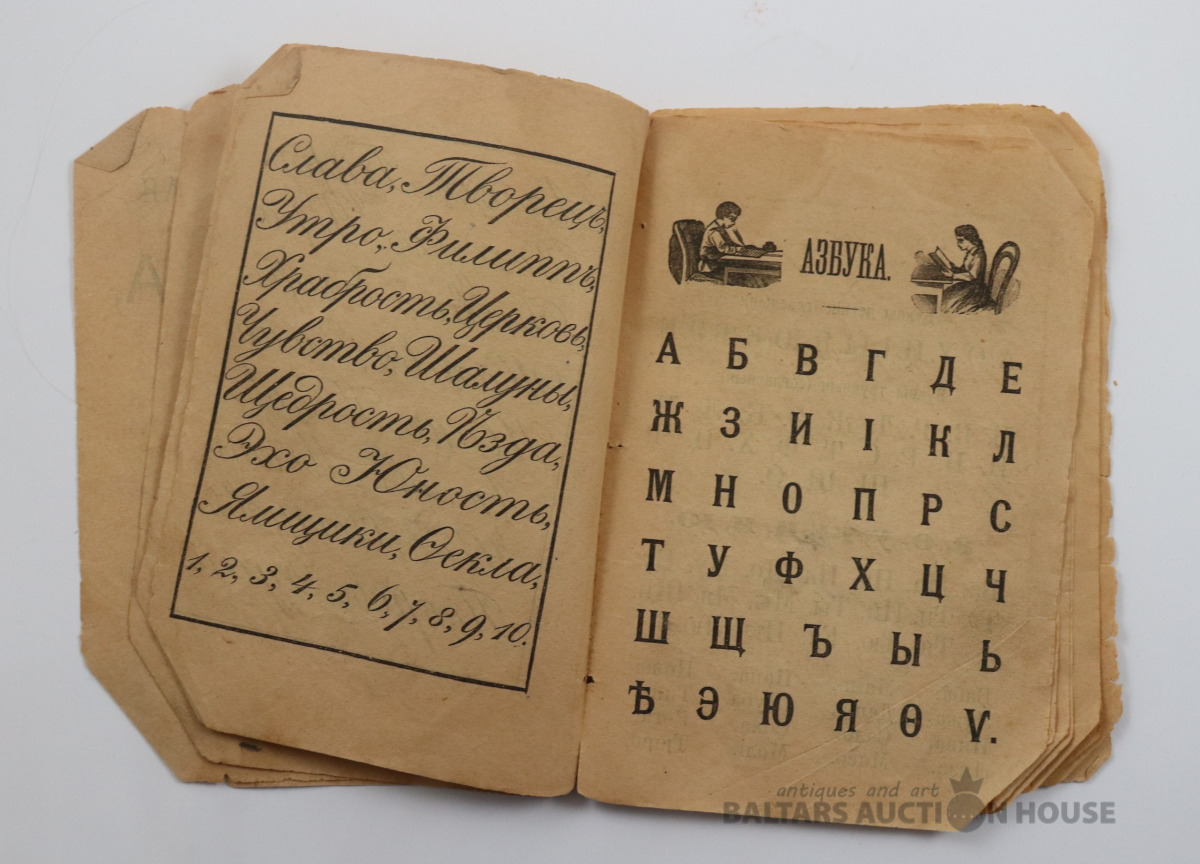 Слава, Творецъ,
Утро, Филиппъ,
Храбрость, Церковь,
Чувство, Шалуны,
Щедрость, Ѣзда,
Эхо Юность,
Ямщики, Ѳекла,
1, 2, 3, 4, 5, 6, 7, 8, 9, 10.
АЗБУКА.
А Б В Г Д Е
Ж З И І К Л
М Н О П Р С
Т У Ф Х Ц Ч
Ш Щ Ъ Ы Ь
Ѣ Э Ю Я Ѳ Ѵ.
antiques and art
BALTARS AUCTION HOUSE